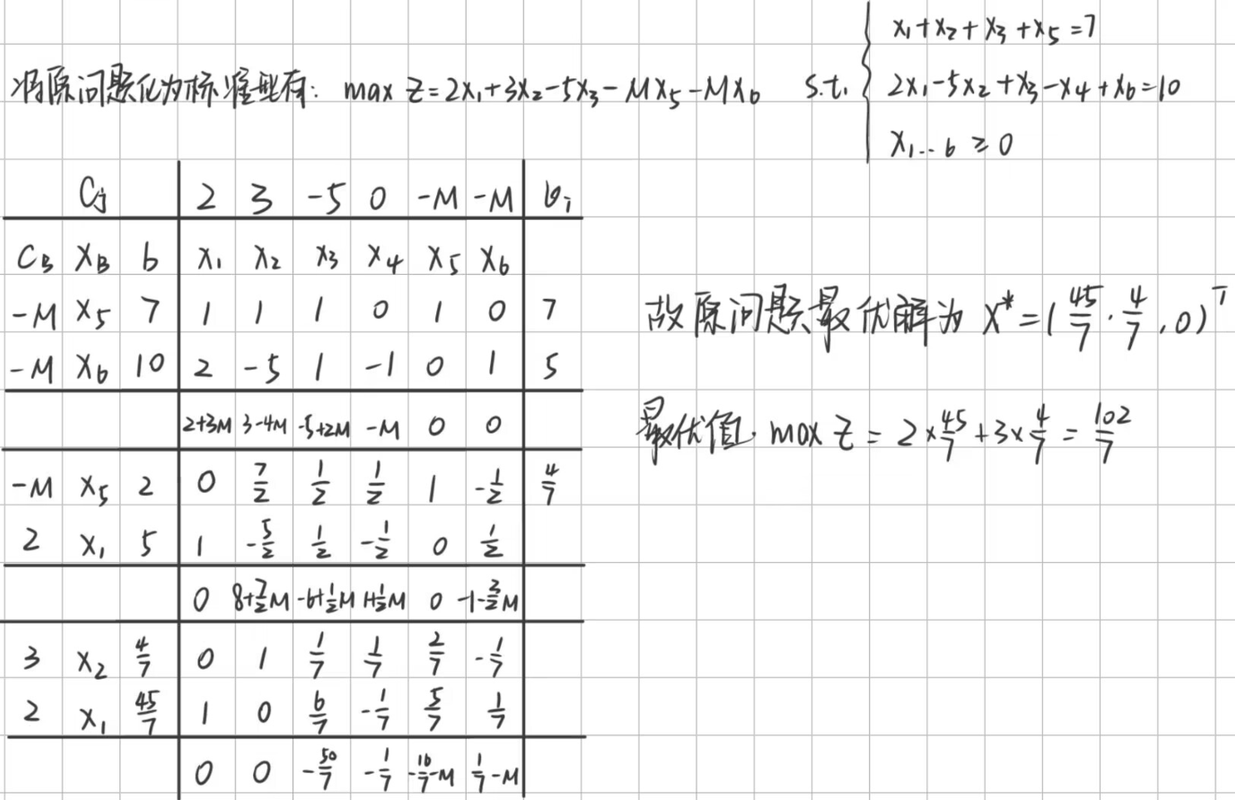 x₁+x₂+x₃+x₅=7
将原问题化为标准型有: max z=2x₁+3x₂-5x₃-Mx₅-Mx₆ s.t. 2x₁-5x₂+x₃-x₄+x₆=10
x₁...₆ ≥0
Cⱼ 2 3 -5 0 -M -M θᵢ
C_B X_B b x₁ x₂ x₃ x₄ x₅ x₆
-M x₅ 7 1 1 1 0 1 0 7
-M x₆ 10 2 -5 1 -1 0 1 5
2+3M 3-4M -5+2M -M 0 0
-M x₅ 2 0 7/2 1/2 1/2 1 -1/2 4/7
2 x₁ 5 1 -5/2 1/2 -1/2 0 1/2
0 8+7/2M -6+1/2M 1+1/2M 0 -1-3/2M
3 x₂ 4/7 0 1 1/7 1/7 2/7 -1/7
2 x₁ 45/7 1 0 6/7 -1/7 5/7 1/7
0 0 -50/7 -1/7 -16/7-M 1/7-M
故原问题最优解为 X*=(45/7,4/7,0)ᵀ
最优值 max z = 2×45/7+3×4/7 = 102/7